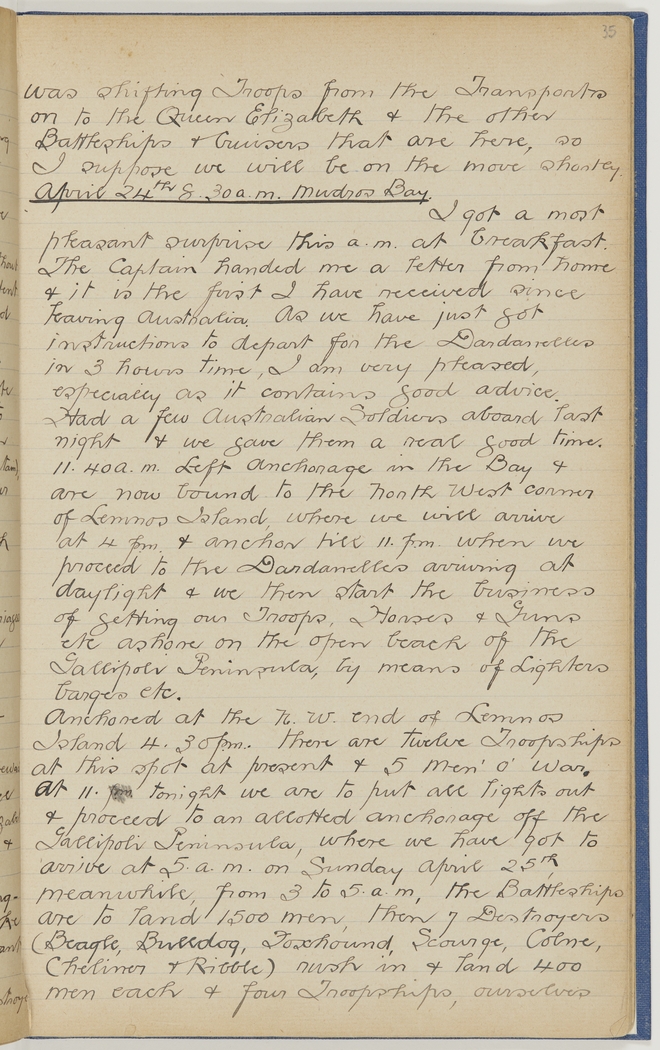 35
was shifting Troops from the Transports
on to the Queen Elizabeth & the other
Battleships & Cruisers that are here, so
I suppose we will be on the move shortly.
April 24th 8.30a.m. Mudros Bay.
I got a most
pleasant surprise this a.m. at breakfast.
The Captain handed me a letter from home
& it is the first I have received since
leaving Australia. As we have just got
instructions to depart for the Dardanelles
in 3 hours time, I am very pleased,
especially as it contains good advice.
Had a few Australian Soldiers aboard last
night & we gave them a real good time.
11.40a.m. Left Anchorage in the Bay &
are now bound to the North West corner
of Lemnos Island, where we will arrive
at 4 pm. & anchor till 11.p.m. when we
proceed to the Dardanelles arriving at
daylight & we then start the business
of getting our Troops, Horses & Guns
etc ashore on the open beach of the
Gallipoli Peninsula, by means of Lighters
barges etc.
Anchored at the N.W. end of Lemnos
Island 4.30pm. there are twelve Troopships
at this spot at present & 5 Men' O' War.
At 11. pm tonight we are to put all lights out
& proceed to an allotted anchorage off the
Gallipoli Peninsula, where we have got to
arrive at 5.a.m. on Sunday April 25th,
meanwhile, from 3 to 5.a.m, the Battleships
are to land 1500 men, then 7 Destroyers
(Beagle, Bulldog, Foxhound, Scourge, Colne,
Chelmer & Ribble) rush in & land 400
men each & four Troopships, ourselves